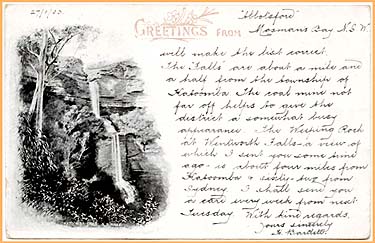 27/1/03
GREETINGS FROM
"Abbotsford"
Mosmans Bay N.S.W.
will make the last correct.
The Falls are about a mile and
a half from the township of
Katoomba. The coal mine not
far off helps to give the
district a somewhat busy
appearance. The Weeping Rock
at Wentworth Falls – a view of
which I sent you some time
ago – is about four miles from
Katoomba & sixty-two from
Sydney. I shall send you
a card every week from next
Tuesday. With kind regards,
Yours sincerely